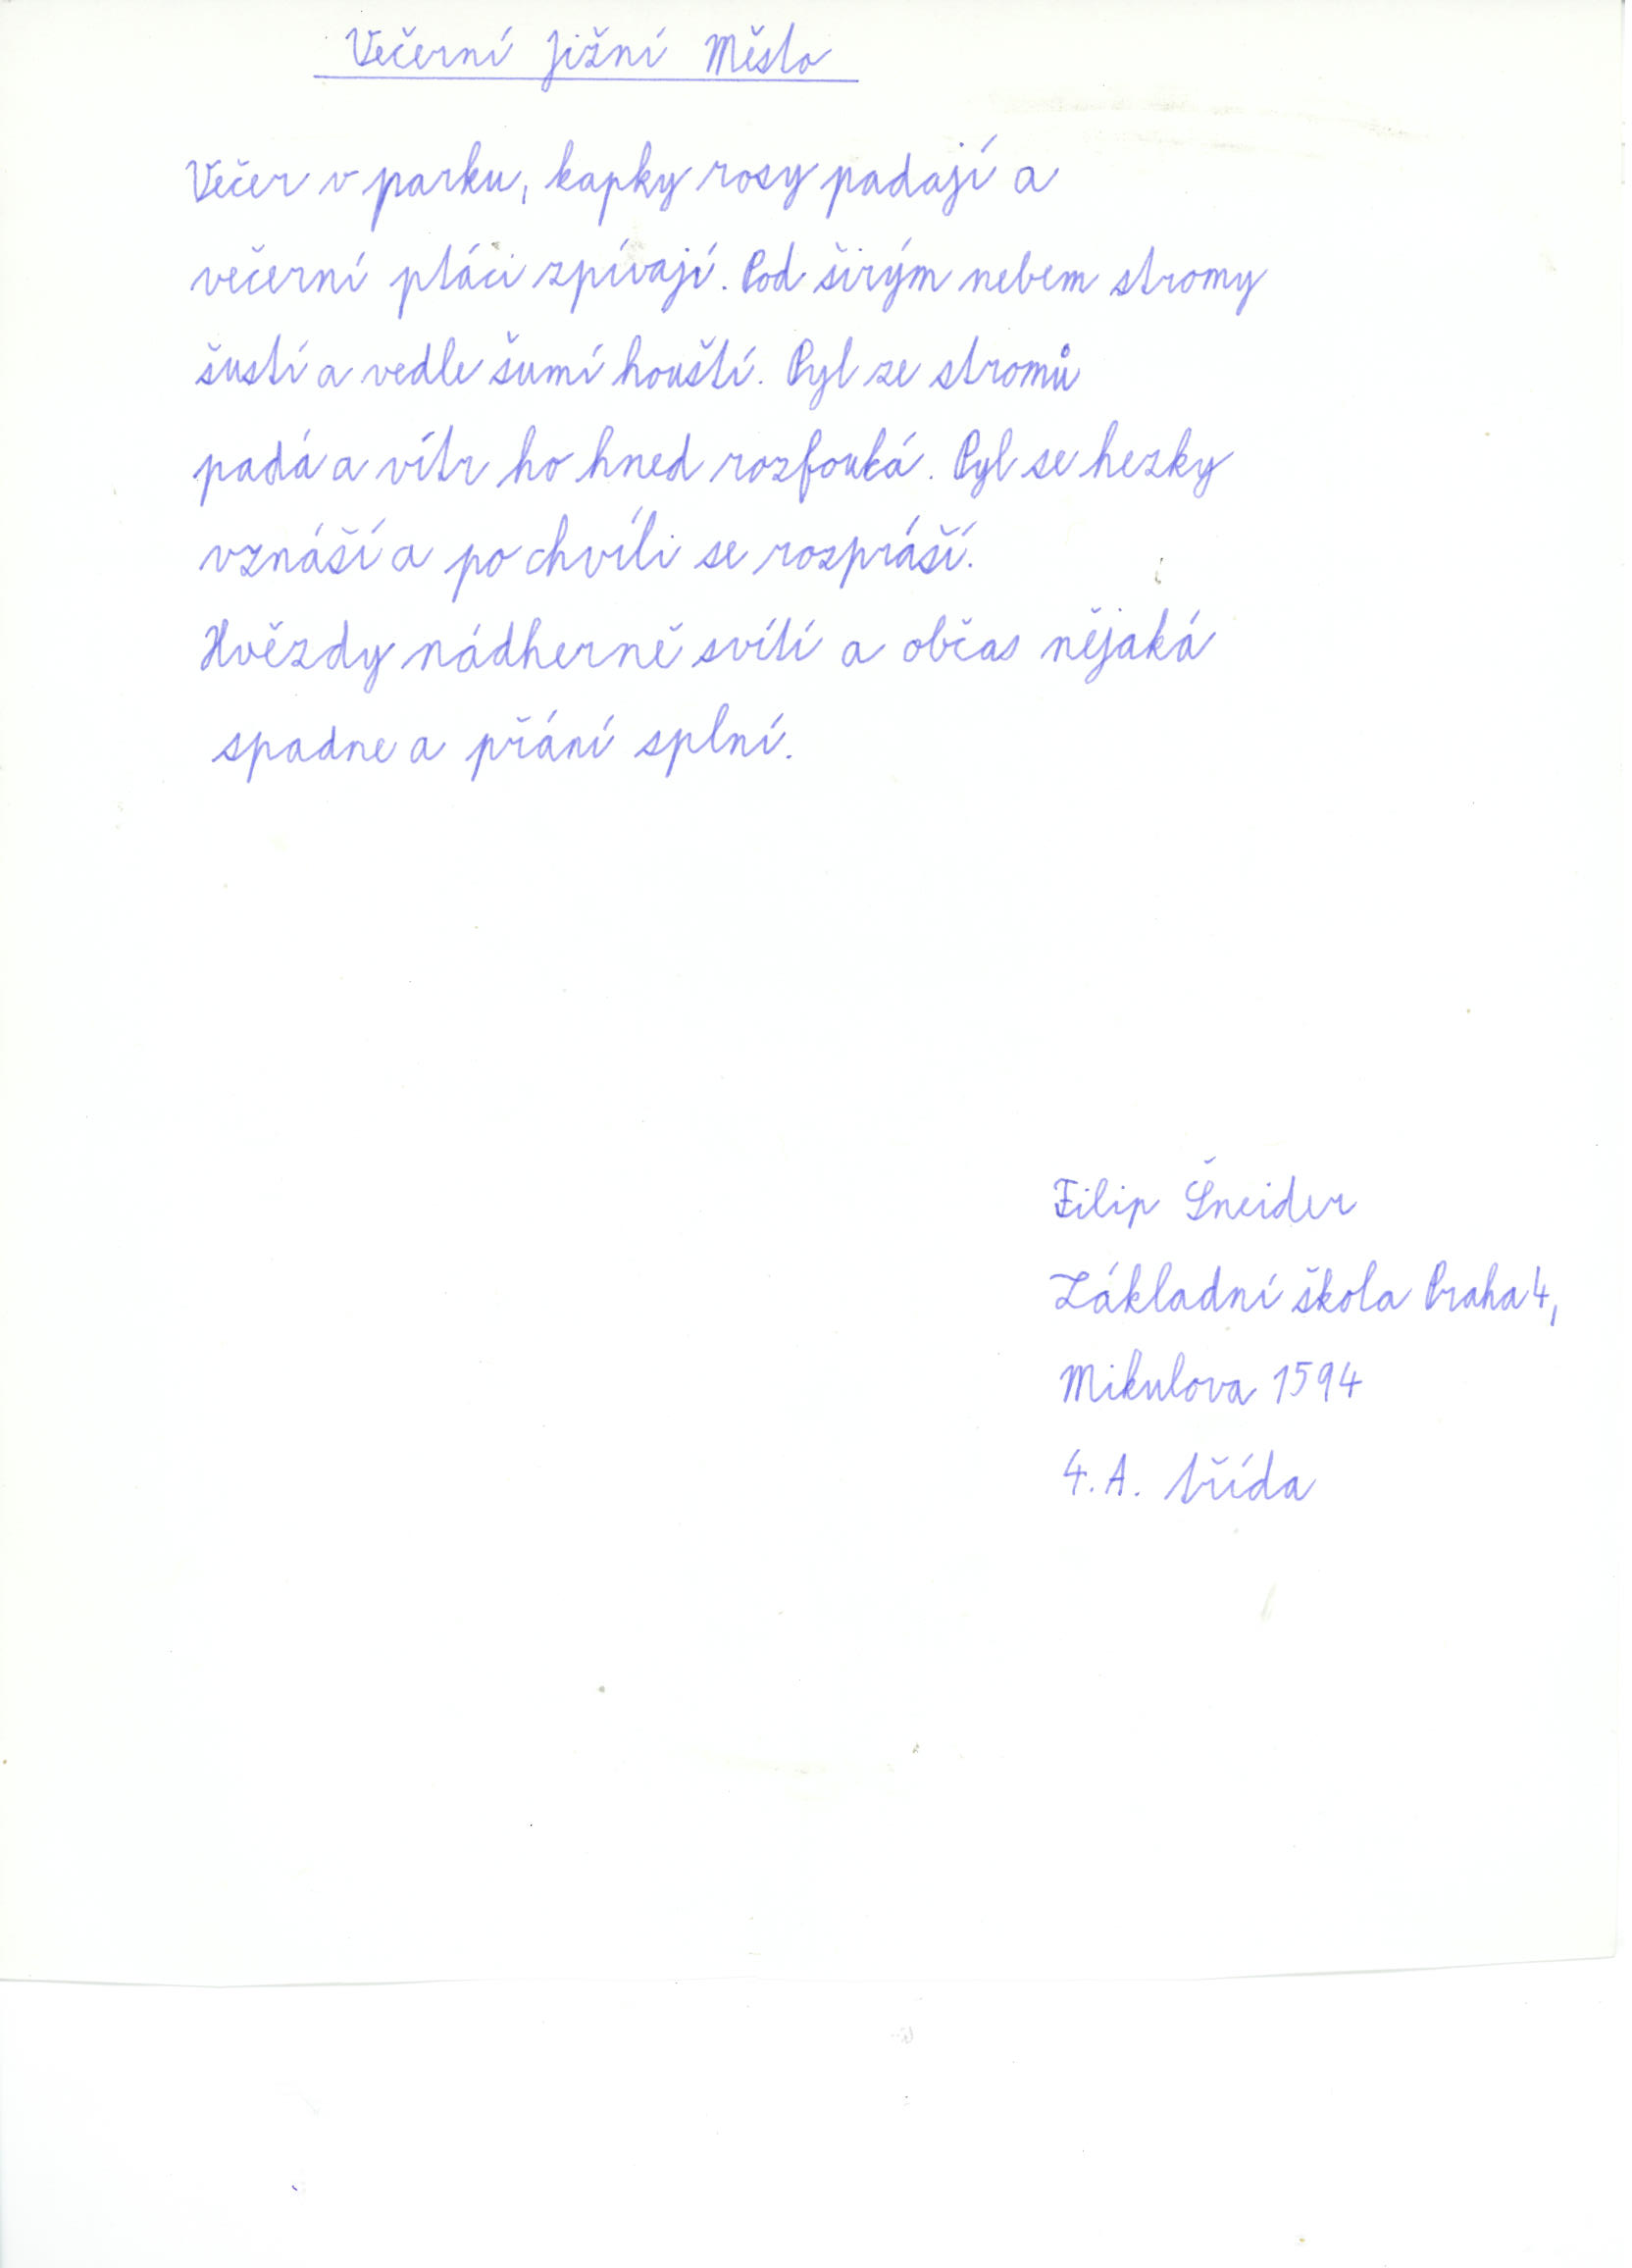 Večerní Jižní Město
Večer v parku, kapky rosy padají a
večerní ptáci zpívají. Pod širým nebem stromy
šustí a vedle šumí houští. Pyl ze stromů
padá a vítr ho hned rozfouká. Pyl se hezky
vznáší a po chvíli se rozpráší.
Hvězdy nádherně svítí a občas nějaká
spadne a přání splní.
Filip Šneider
Základní škola Praha 4,
Mikulova 1594
4. A. třída